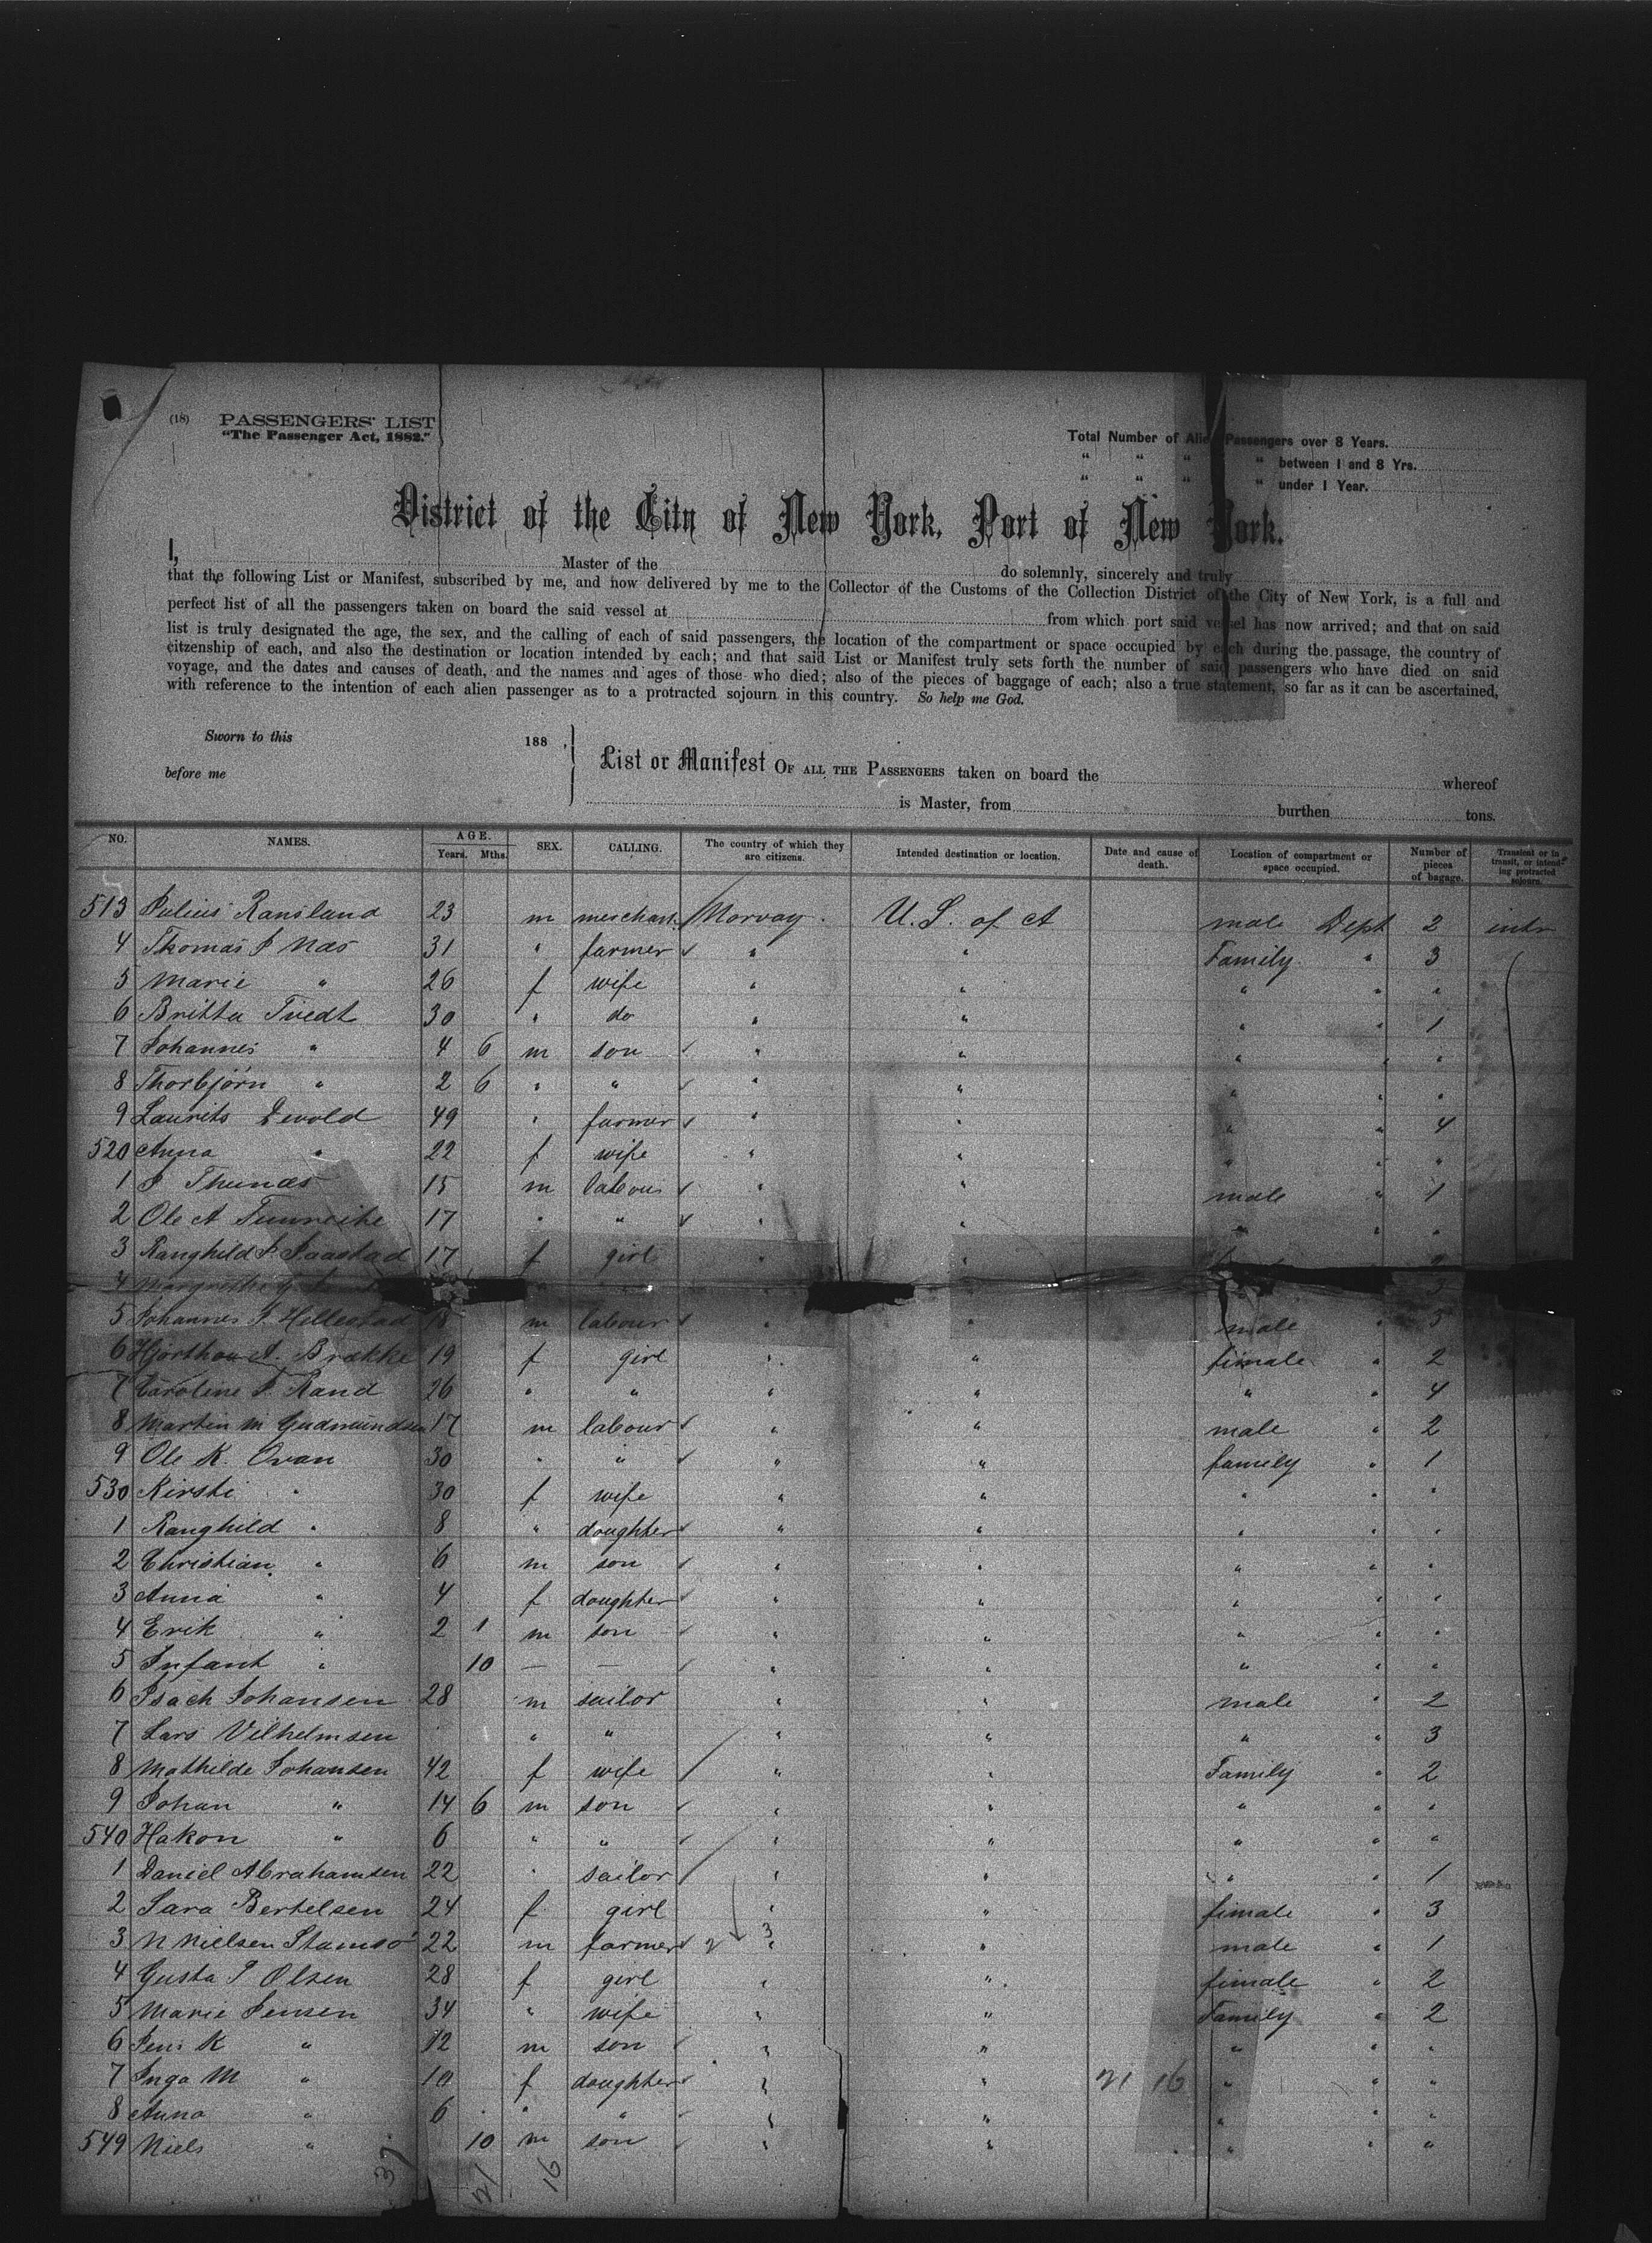 (18) PASSENGERS' LIST
"The Passenger Act, 1882."
Total Number of Alien Passengers over 8 Years.
" " " " between 1 and 8 Yrs.
" " " " under 1 Year.
District of the City of New York, Port of New York.
I, Master of the do solemnly, sincerely and truly
that the following List or Manifest, subscribed by me, and now delivered by me to the Collector of the Customs of the Collection District of the City of New York, is a full and
perfect list of all the passengers taken on board the said vessel at from which port said vessel has now arrived; and that on said
list is truly designated the age, the sex, and the calling of each of said passengers, the location of the compartment or space occupied by each during the passage, the country of
citzenship of each, and also the destination or location intended by each; and that said List or Manifest truly sets forth the number of said passengers who have died on said
voyage, and the dates and causes of death, and the names and ages of those who died; also of the pieces of baggage of each; also a true statement, so far as it can be ascertained,
with reference to the intention of each alien passenger as to a protracted sojourn in this country. So help me God.
Sworn to this 188 ,
before me
List or Manifest OF ALL THE PASSENGERS taken on board the whereof
is Master, from burthen tons.
NO. NAMES. AGE. Years. Mths. SEX. CALLING. The country of which they are citizens. Intended destination or location. Date and cause of death. Location of compartment or space occupied. Number of pieces of bagage. Transient or in transit, or intending protracted sojourn.
513 Julius Ransland 23 m merchant Norvay. U. S. of A male Dept 2 intr
4 Thomas J Næs 31 " farmer " " Family " 3
5 Marie " 26 f wife " " " " "
6 Britta Tvedt 30 " do " " " " 1
7 Johannes " 4 6 m son " " " " "
8 Thorbjörn " 2 6 " " " " " " "
9 Laurits Devold 49 " farmer " " " " 4
520 Anna " 22 f wife " " " " "
1 J Thunæs 15 m labour " " male " 1
2 Ole A 17 " " " " " " "
3 Ranghild J. 17 f girl " "
4 Margrethe
5 Johannes J. Hellestad 18 m labour " " male " 3
6 A. Brække 19 f girl " " fimale " 2
7 Caroline J. Rand 26 " " " " " " 4
8 Martin M Gudmundsen 17 m labour " " male " 2
9 Ole K. Ovan 30 " " " " family " 1
530 Kirsti " 30 f wife " " " " "
1 Ranghild " 8 " doughter " " " " "
2 Christian " 6 m son " " " " "
3 Anna " 4 f doughter " " " " "
4 Erik " 2 1 m son " " " " "
5 Infant " 10 — — " " " " "
6 Isach Johansen 28 m sailor " " male " 2
7 Lars Vilhelmsen " " " " " " 3
8 Mathilde Johansen 42 f wife " " Family " 2
9 Johan " 14 6 m son " " " " "
540 Hakon " 6 " " " " " " "
1 Daniel Abrahamsen 22 " sailor " " " " 1
2 Sara Bertelsen 24 f girl " " fimale " 3
3 N Nielsen Stamsö 22 m farmer 2 3 " " male " 1
4 Gusta P Olsen 28 f girl " " fimale " 2
5 Marie Jensen 34 " wife " " Family " 2
6 Jens K " 12 m son " " " " "
7 Inga M " 10 f doughter " " 21 16 " " "
8 Anna " 6 " " " " " " "
549 Niels " 10 m son " " " " "
37. 21 16